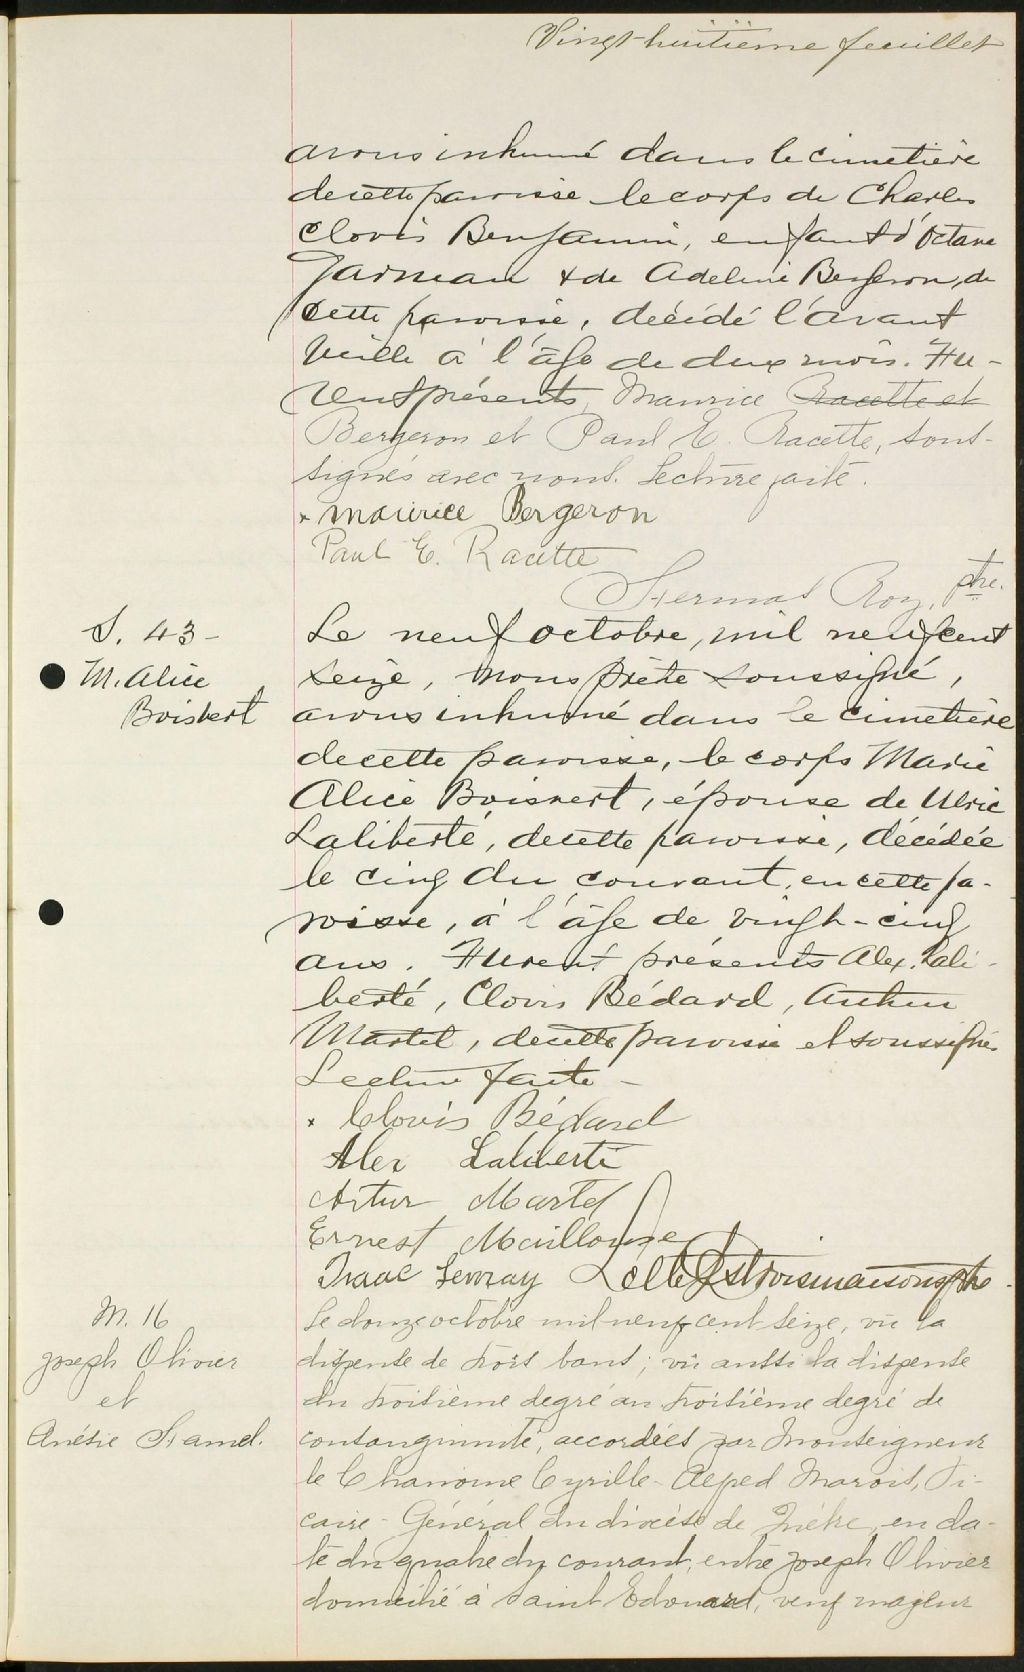 Vingt-huitième feuillet
avons inhumé dans le cimetière
de cette paroisse le corps de Charles
Clovis Benjamin, enfant d'Octave
Garneau & de Adeline Bergeron, de
cette paroisse, décédé l'avant
veille à l'âge de deux mois. Fu-
rent présents, Maurice Racette et
Bergeron et Paul E. Racette, sous-
signés avec nous. Lecture faite.
x Maurice Bergeron
Paul E. Racette
Roy, ptre.
S. 43 -
M. Alice
Boisvert
Le neuf octobre, mil neuf cent
seize, nous prêtre soussigné,
avons inhumé dans le cimetière
de cette paroisse, le corps Marie
Alice Boisvert, épouse de Ulric
Laliberté, de cette paroisse, décédée
le cinq du courant, en cette pa-
roisse, à l'âge de vingt-cinq
ans. Furent présents Alex. Lali-
berté, Clovis Bédard, Arthur
Martel, de cette paroisse et soussignés
Lecture faite -
x Clovis Bédard
Alex Laliberté
Artur Martel
Ernest
Isaac Lemay Destroismaisons ptre
M. 16
Joseph Olivier
et
Anésie Hamel.
Le douze octobre mil neuf cent seize, vu la
dispense de trois bans; vu aussi la dispense
du troisième degré au troisième degré de
consanguinité, accordées par Monseigneur
le Chanoine Cyrille-Alfred Marois, Vi-
caire-Général du diocèse de Québec, en da-
te du quatre du courant, entre Joseph Olivier
domicilié à Saint Edouard, veuf majeur